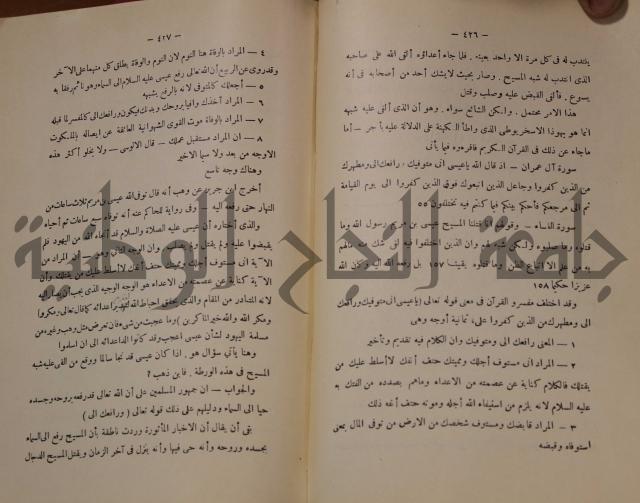 — ٤٢٦ —
ينتدب له فى كل مرة الا واحد بعينه . فلما جاء أعداؤه ألقى الله على صاحبه
الذى انتدب له شبه المسيح . وصار بحيث لا يشك أحد من أصحابه فى أنه
يسوع . فألقى القبض عليه وصلب وقتل
هذا الامر محتمل . ولكن الشائع سواه . وهو أن الذى ألقى شبهه عليه
انما هو يهوذا الاسخريوطى الذى واطأ الكهنة على الدلالة عليه بأجر — أما
ماجاء عن ذلك فى القرآن الكريم فاقرءوه فيما يأتى
سورة آل عمران — اذ قال الله ياعيسى انى متوفيك ورافعك الى ومطهرك
من الذين كفروا وجاعل الذين اتبعوك فوق الذين كفروا الى يوم القيامة
ثم الى مرجعكم فأحكم بينكم فيما كنتم فيه تختلفون ٥٥
سورة النساء — وقولهم انا قتلنا المسيح عيسى بن مريم رسول الله وما
قتلوه وما صلبوه ولكن شبه لهم وان الذين اختلفوا فيه لفى شك منه مالهم
به من علم الا اتباع الظن وما قتلوه يقينا ١٥٧ بل رفعه الله اليه وكان الله
عزيزا حكيما ١٥٨
وقد اختلف مفسرو القرآن فى معنى قوله تعالى (ياعيسى انى متوفيك ورافعك
الى ومطهرك من الذين كفروا) على ثمانية أوجه وهى
١ — المعنى رافعك الى ومتوفيك وان الكلام فيه تقديم وتأخير
٢ — المراد انى مستوف أجلك ومميتك حتف أنفك لا أسلط عليك من
يقتلك فالكلام كناية عن عصمته من الاعداء وماهم بصدده من الفتك به
عليه السلام لانه يلزم من استيفاء الله أجله وموته حتف أنفه ذلك
٣ — المراد قابضك ومستوف شخصك من الارض من توفى المال بمعنى
استوفاه وقبضه
— ٤٢٧ —
٤ — المراد بالوفاة هنا النوم لان النوم والوفاة يطلق كل منهما على الآخر
وقد روى عن الربيع أن الله تعالى رفع عيسى عليه السلام الى السماء وهو نائم رفقا به
٥ — أجعلك كالمتوفى لانه بالرفع يشبهه
٦ — المراد آخذك وافيا بروحك وبدنك فيكون ورافعك الى كالمفسر لما قبله
٧ — المراد بالوفاة موت القوى الشهوانية العائقة عن ايصاله بالملكوت
٨ — ان المراد مستقبل عملك — قال الالوسى — ولا يخلو أكثر هذه
الاوجه من بعد ولا سيما الاخير
وهناك وجه تاسع
أخرج ابن جرير عن وهب أنه قال توفى الله عيسى بن مريم ثلاث ساعات من
النهار حتى رفعه اليه — وفى رواية للحاكم عنه أنه توفاه سبع ساعات ثم أحياه
والذى أختاره أن عيسى عليه الصلاة والسلام قد أنجاه الله من اليهود فلم
يقبضوا عليه ولم يقتل ولم يصلب وان الوجه الثانى وهو — ان المراد من
الآية انى مستوف أجلك ومميتك حتف أنفك لا أسلط عليك من يقتلك وأن
الآية كناية عن عصمته من الاعداء هو الوجه الوجيه الذى يجب أن يصار اليه
لانه المتبادر من المقام والذى يحقق احباط الله لتدبير أعدائه كما قال تعالى (ومكروا
ومكر الله والله خير الماكرين)
مسلمة اليهود لشأن عيسى
وهنا يأتى سؤال هو . اذا كان عيسى قد نجا سالما ووقع من القى عليه شبه
المسيح فى هذه الورطة . فاين ذهب ؟
والجواب — ان جمهور المسلمين على أن الله تعالى قد رفعه بروحه وجسده
حيا الى السماء ودليلهم على ذلك قوله تعالى (ورافعك الى)
بقى أن يقال أن الاخبار المأثورة وردت ناطقة بأن المسيح رفع الى السماء
بجسده وروحه وأنه حى فيها وأنه ينزل فى آخر الزمان ويقتل المسيح الدجال
جامعة النجاح الوطنية